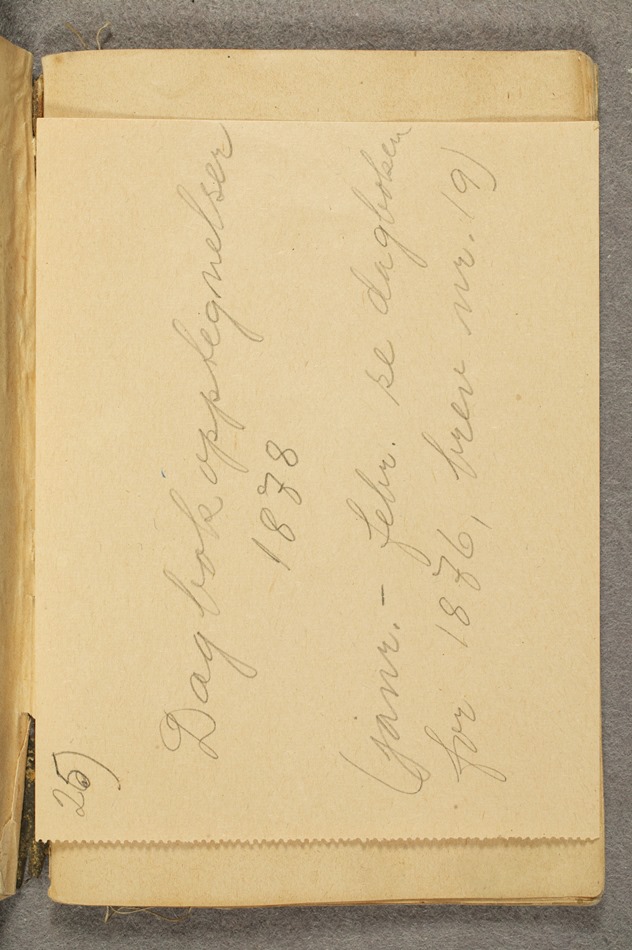 25)
Dagbokopptegnelser
1878
(janr. - febr. se dagboken
for 1876, brev nr. 19)